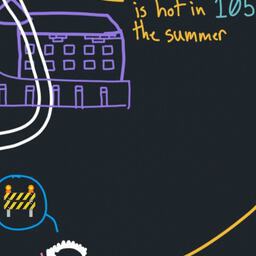 is hot in 105
the summer